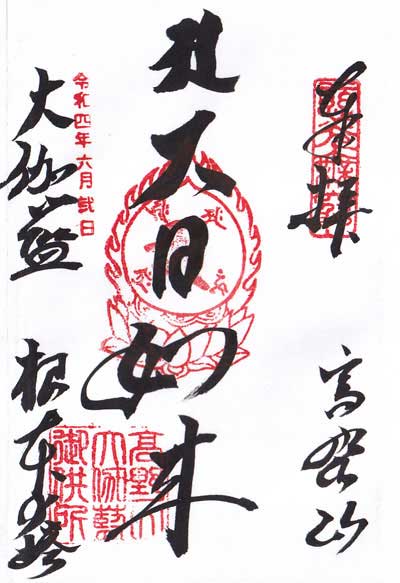 奉拝
高野山
大日如来
令和四年六月弐日
大伽藍
根本大塔
高野山
大伽藍
御供所